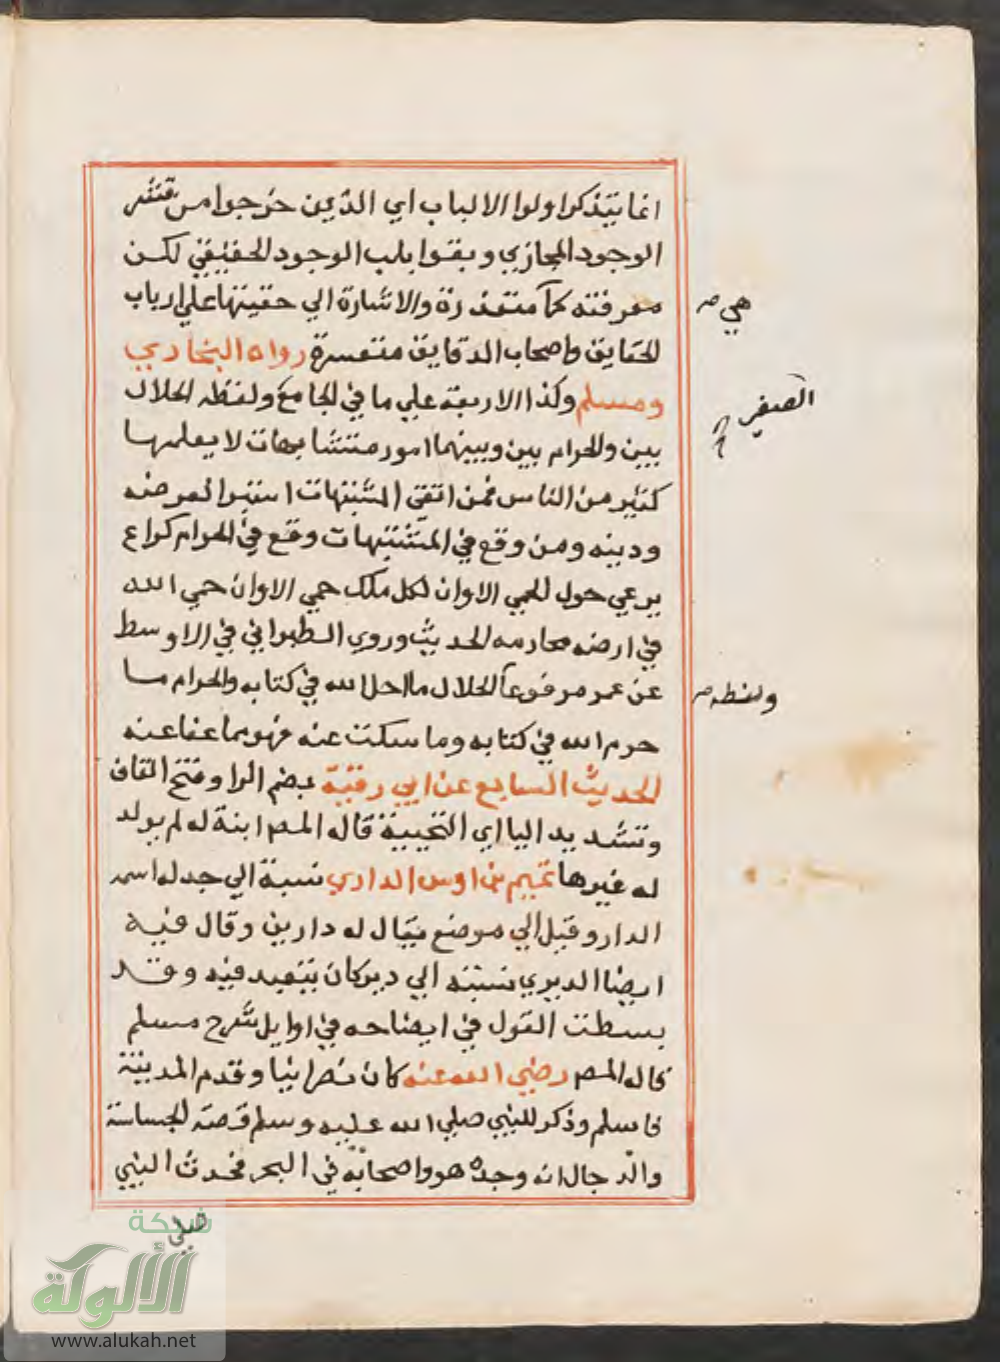 انما يتذكر اولوا الالباب اي الذين خرجوا من قشر
الوجود المجازي وبقوا بلب الوجود الحقيقي لكن
معرفته كما متعذرة والاشارة الي حقيقتها علي ارباب
الحقايق واصحاب الدقايق متعسرة رواه البخاري
ومسلم وكذا الاربعة علي ما في الجامع ولفظه الحلال
بين والحرام بين وبينهما امور متشابهات لا يعلمها
كثير من الناس فمن اتقي المشتبهات استبرا لعرضه
ودينه ومن وقع في المشتبهات وقع في الحرام كراع
يرعي حول الحمي الاوان لكل ملك حمي الاوان حمي الله
في ارضه محارمه الحديث وروي الطبراني في الاوسط
عن عمر مرفوعا الحلال ما احل الله في كتابه والحرام ما
حرم الله في كتابه وما سكت عنه فهو مما عفا عنه
الحديث السابع عن ابي رقية بضم الرا وفتح القاف
وتشديد اليا اي التحيية قاله المص ابنة له لم يولد
له غيرها تميم بن اوس الداري نسبة الي جد له اسمه
الدار وقيل الي موضع يقال له دارين وقال فيه
ايضا الديري نسبة الي دير كان يتعبد فيه وقد
بسطت القول في ايضاحه في اوايل شرح مسلم
قاله المص رضي الله عنه كان نصرانيا وقدم المدينة
فاسلم وذكر للنبي صلي الله عليه وسلم قصة الجساسة
والدجال انه وجده هو واصحابه في البحر فحدث النبي
صلي
هي صح
الصغير
ولفظه صح
شبكة
الألوكة
www.alukah.net